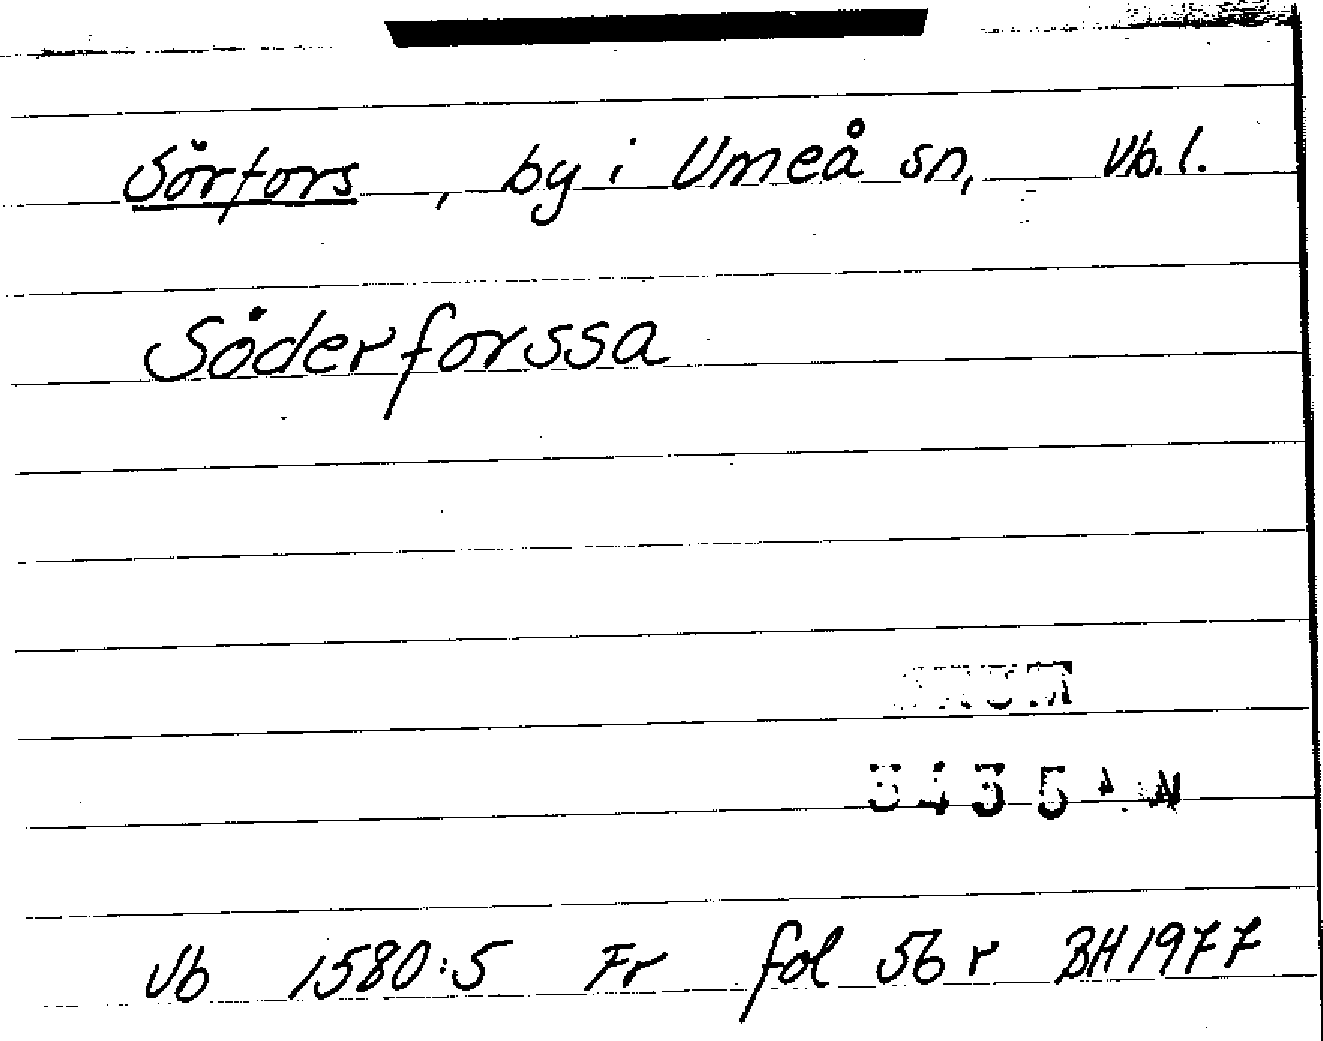 Sörfors, by i Umeå sn, Vb. l.
Söderforssa
3435
Vb 1580:5 Fr fol 56 r BH 1977